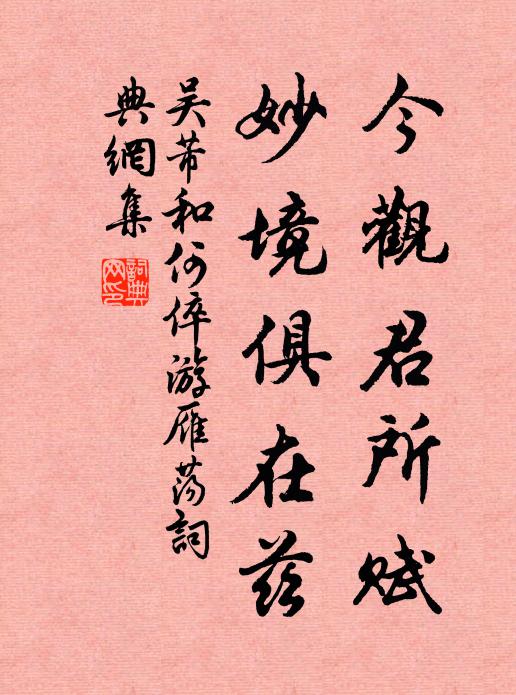 今觀君所賦
妙境俱在茲
吳芾和何倅游雁蕩詞
典網集
詞典網印